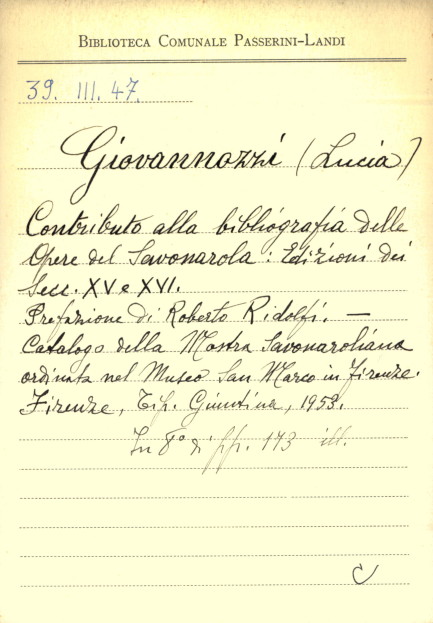 BIBLIOTECA COMUNALE PASSERINI-LANDI
39. III. 47.
Giovannozzi (Lucia)
Contributo alla bibliografia delle
Opere del Savonarola: Edizioni dei
Secc. XV e XVI.
Prefazione di Roberto Ridolfi. —
Catalogo della Mostra Savonaroliana
ordinata nel Museo San Marco in Firenze.
Firenze, Tip. Giuntina, 1953.
In 8° di pp. 173 ill.